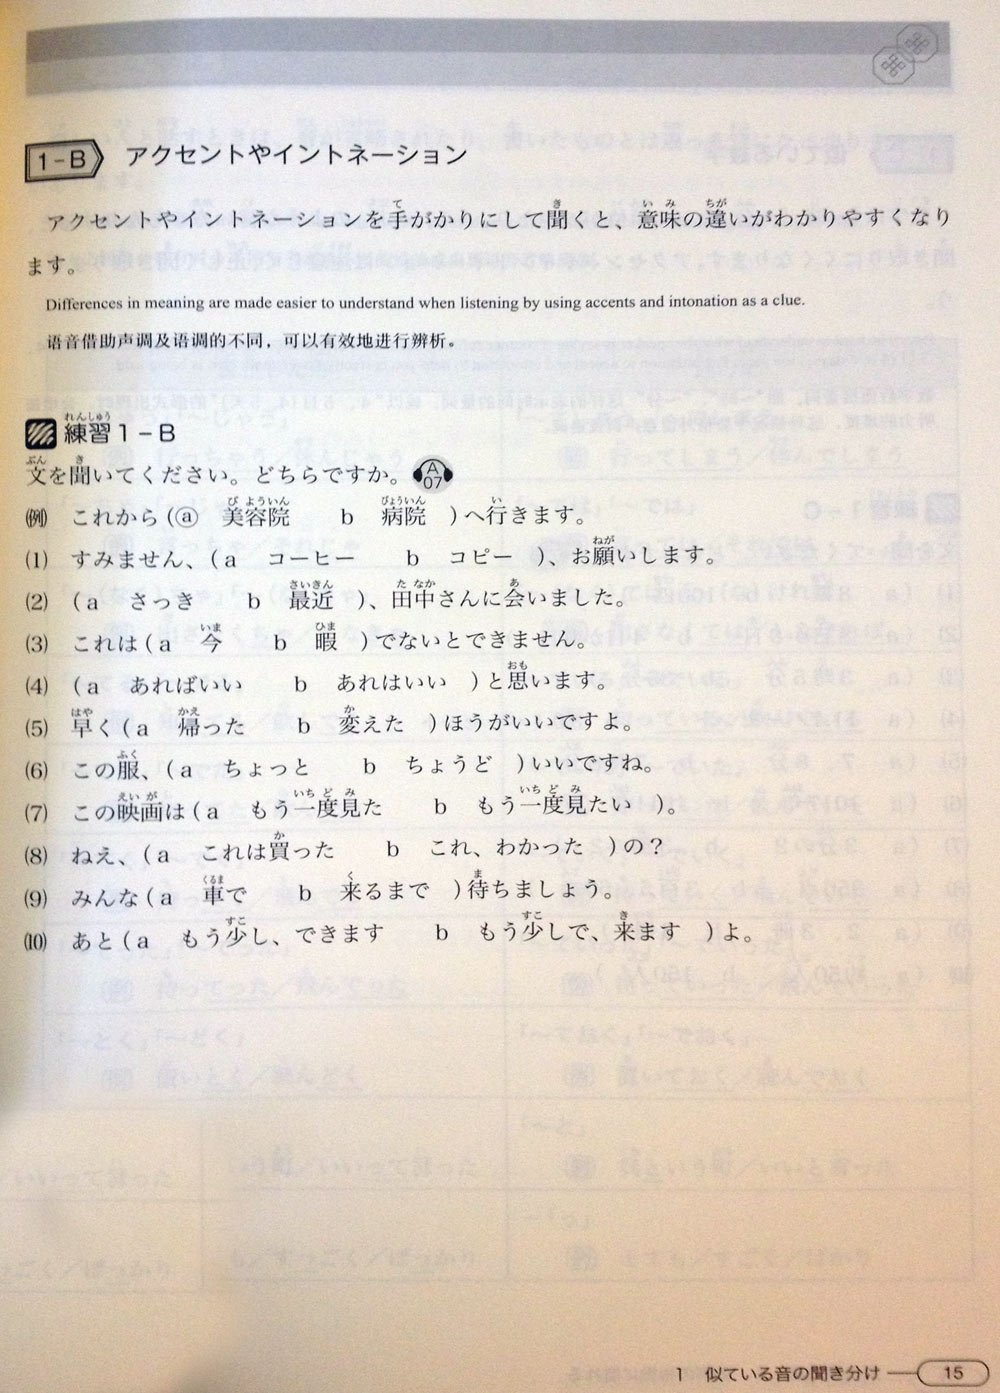 1-B アクセントやイントネーション
アクセントやイントネーションを手がかりにして聞くと、意味の違いがわかりやすくなり
ます。
Differences in meaning are made easier to understand when listening by using accents and intonation as a clue.
语音借助声调及语调的不同，可以有效地进行辨析。
練習1-B
文を聞いてください。どちらですか。 A 07
(例) これから(ⓐ 美容院 b 病院 )へ行きます。
(1) すみません、(a コーヒー b コピー )、お願いします。
(2) (a さっき b 最近 )、田中さんに会いました。
(3) これは(a 今 b 暇 )でないとできません。
(4) (a あればいい b あれはいい )と思います。
(5) 早く(a 帰った b 変えた )ほうがいいですよ。
(6) この服、(a ちょっと b ちょうど )いいですね。
(7) この映画は(a もう一度見た b もう一度見たい )。
(8) ねえ、(a これは買った b これ、わかった )の?
(9) みんな(a 車で b 来るまで )待ちましょう。
(10) あと(a もう少し、できます b もう少しで、来ます )よ。
1 似ている音の聞き分け 15